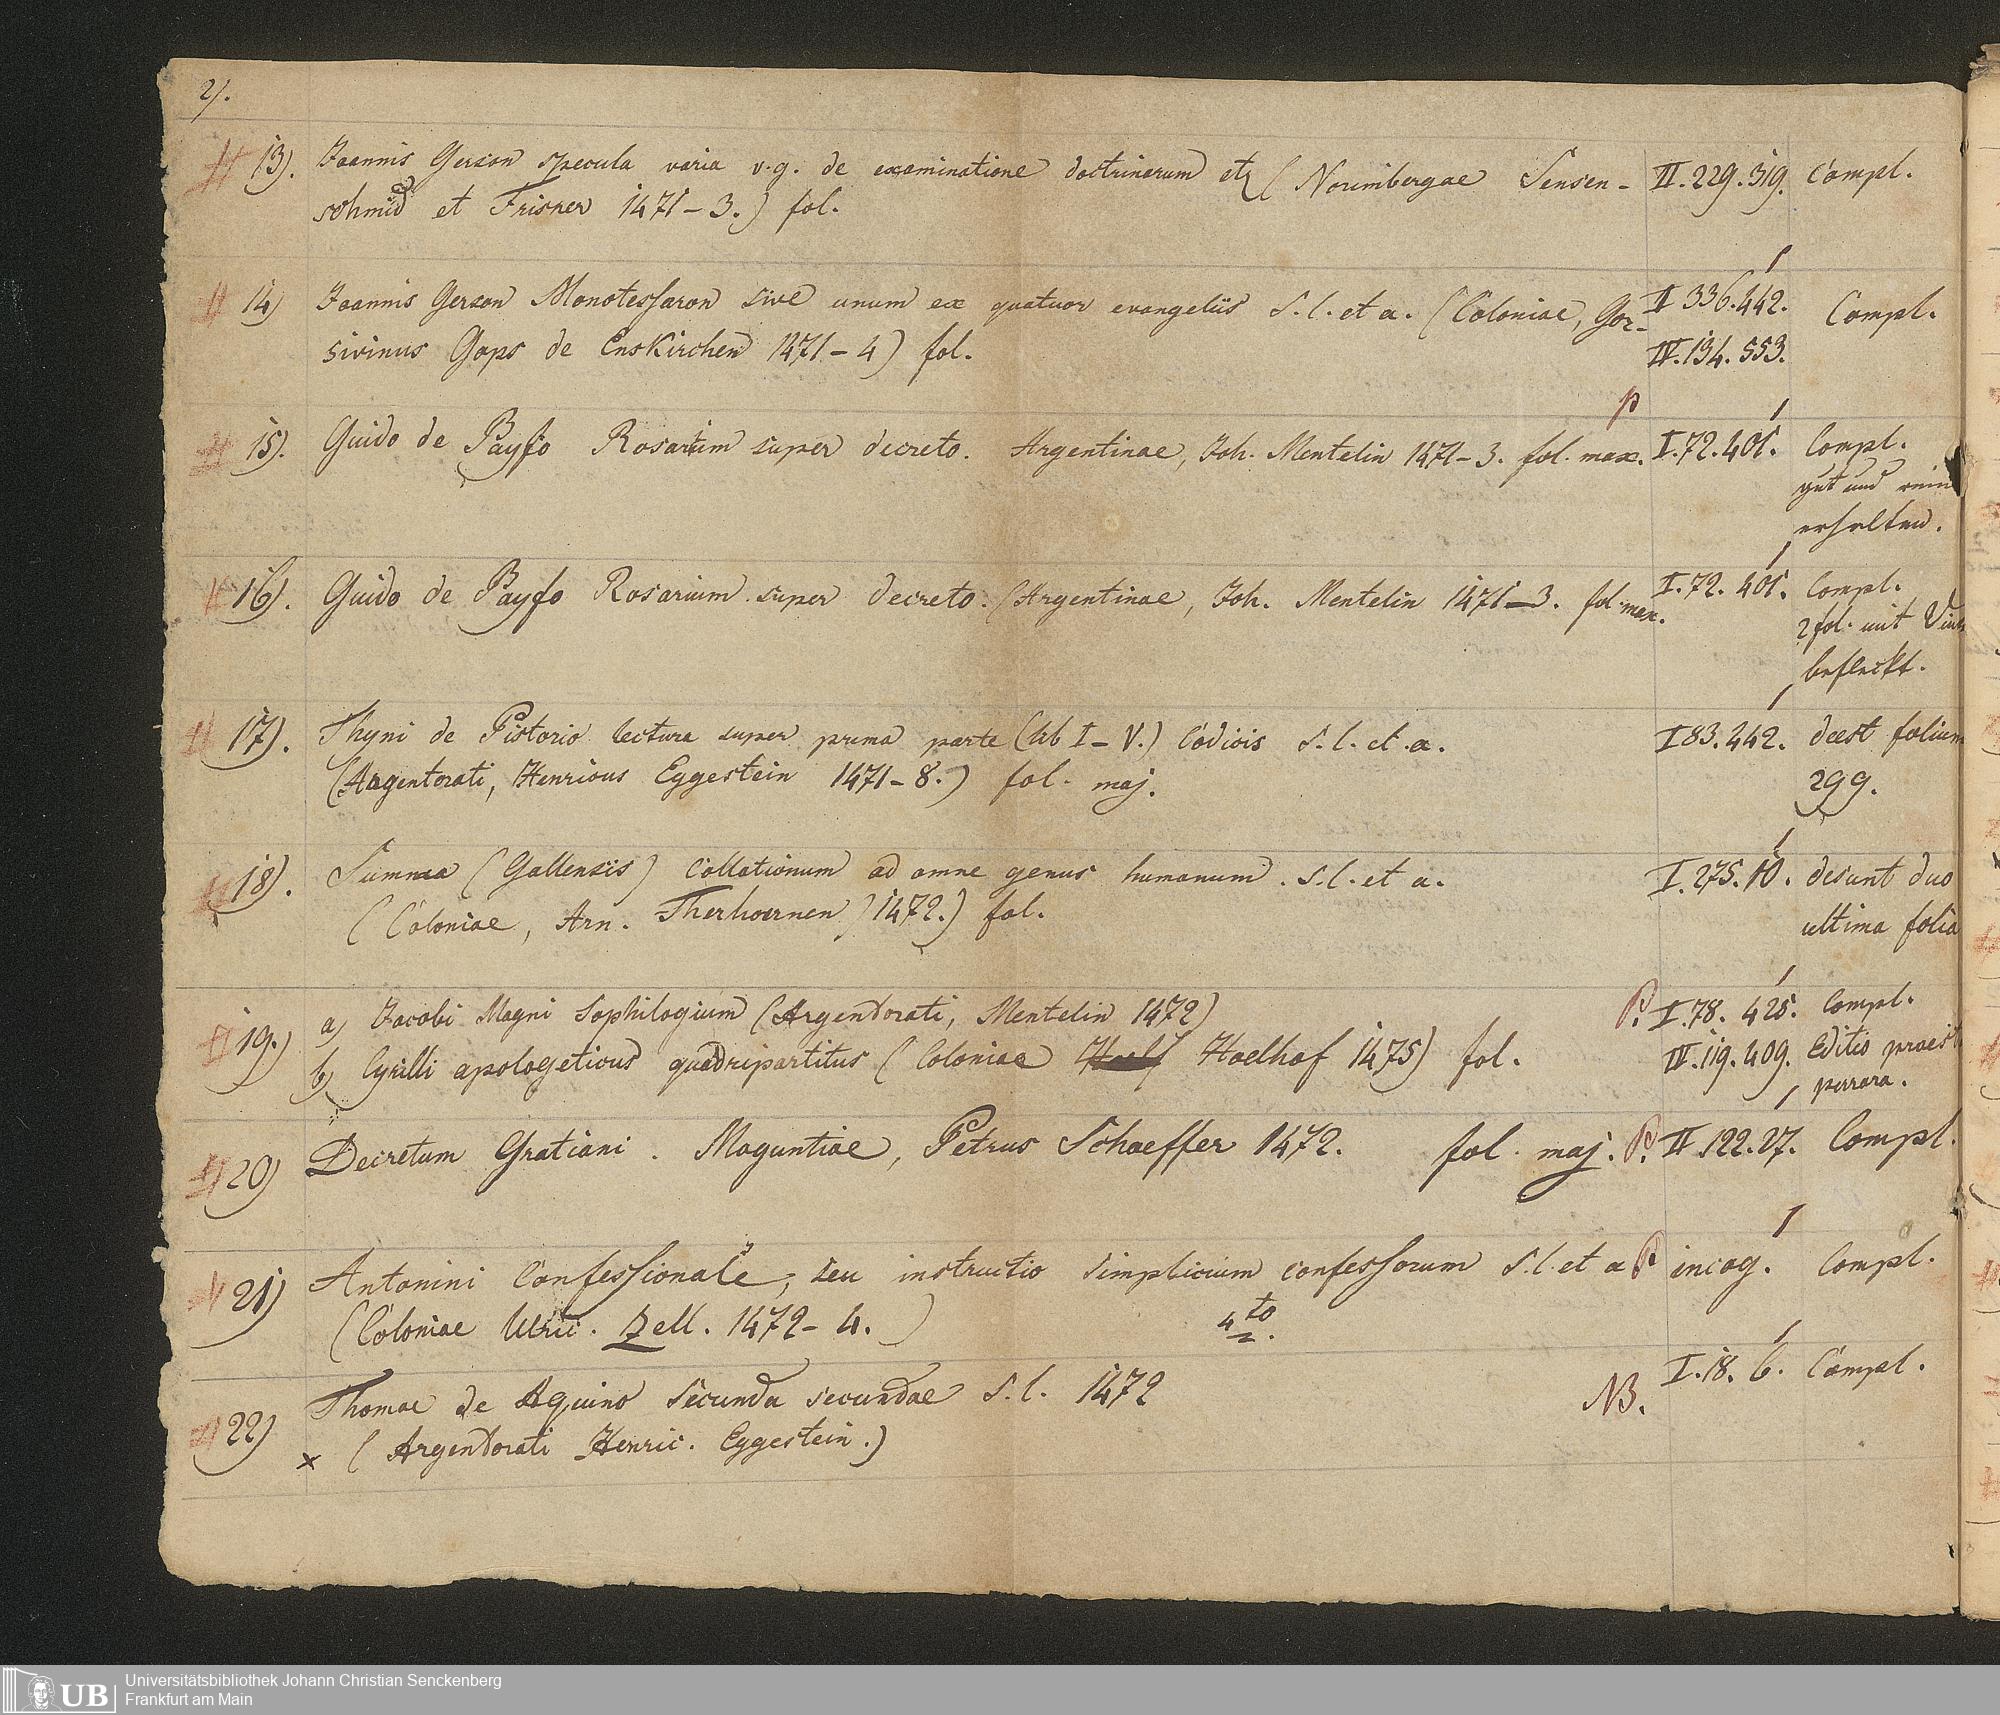 2).
13). Joannis Gerson specula varia v.g. de examinatione doctrinarum et (Norimbergae Sensen- II. 229. 319. Compl.
schmid et Frisner 1471-3.) fol.
14) Joannis Gerson Monotessaron sive unum ex quatuor evangeliis S. l. et a. (Coloniae, Gor- II 336. 442. Compl.
sivinus Gops de Enskirchen 1471-4) fol. IV. 134. 553.
p
15). Guido de Bayso Rosarium super decreto. Argentinae, Joh. Mentelin 1471-3. fol. max. I. 72. 401. Compl.
gut und rein
erhalten.
16). Guido de Bayso Rosarium super decreto. (Argentinae, Joh. Mentelin 1471-3. fol. max. I. 72. 401. Compl.
2 fol. mit
befleckt.
17). Thyni de Pistorio lectura super prima parte (lib I-V.) Codicis S. l. et. a. I 83. 442. deest folium
(Argentorati, Henricus Eggestein 1471-8.) fol. maj. 299.
18). Summa (Gallensis) Collationum ad omne genus humanum. S. l. et a. I. 275. 10. desunt duo
(Coloniae, Arn. Therhoernen) 1472.) fol. ultima folia
19.) a) Jacobi Magni Sophilogium (Argentorati, Mentelin 1472) P. I. 78. 425. Compl.
b) Cyrilli apologeticus quadripartitus (Coloniae Hoelhof 1475) fol. IV. 119. 409. Editio
perrara.
20) Decretum Gratiani. Moguntiae, Petrus Schoeffer 1472. fol. maj. P. II. 122. 27. Compl.
21) Antonini Confessionale, seu instructio simplicium confessorum S. l. et a P incog. Compl.
(Coloniae Ulric. Zell. 1472-4.) 4to.
22) Thomae de Aquino Secunda secundae S. l. 1472 NB. I. 18. 6. Compl.
x (Argentorati Henric. Eggestein.)
UB Universitätsbibliothek Johann Christian Senckenberg
Frankfurt am Main